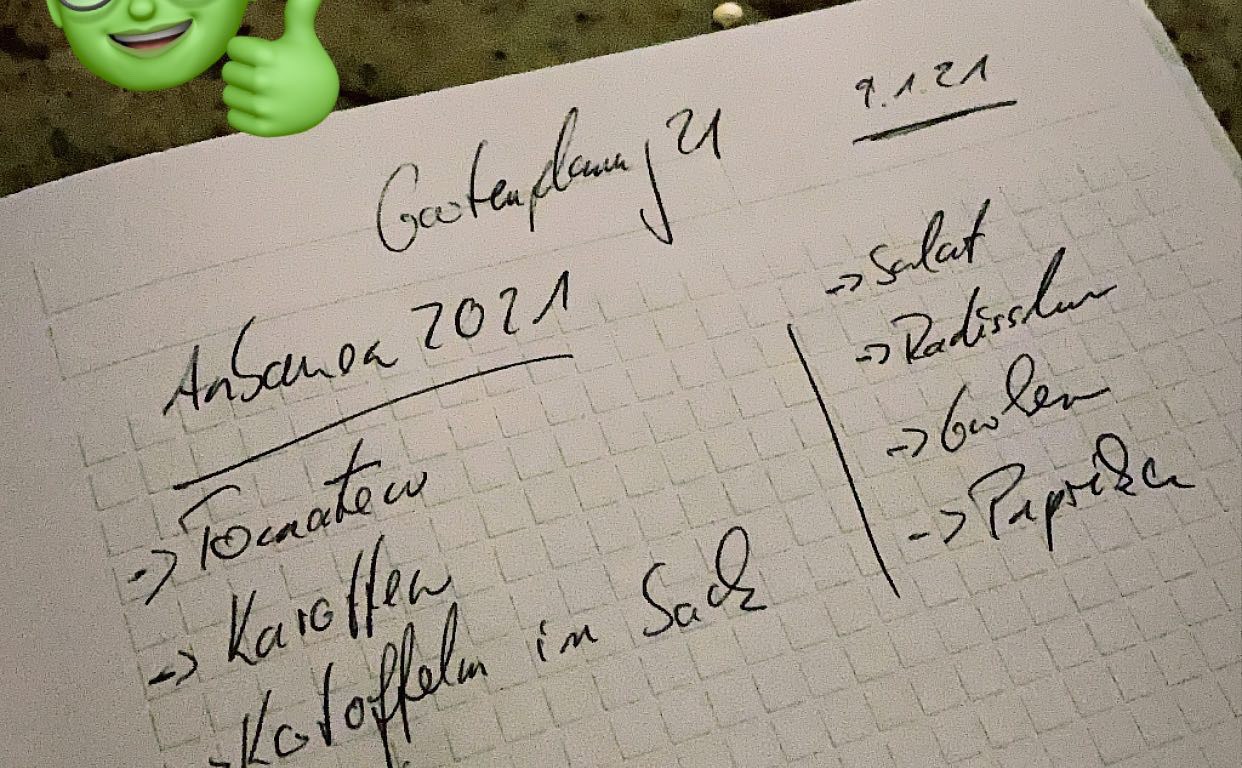 Gartenplanung 21
9.1.21
Anbau 2021
-> Tomaten
-> Karotten
-> Kartoffeln im Sack
-> Salat
-> Radisschen
-> Gurken
-> Paprika